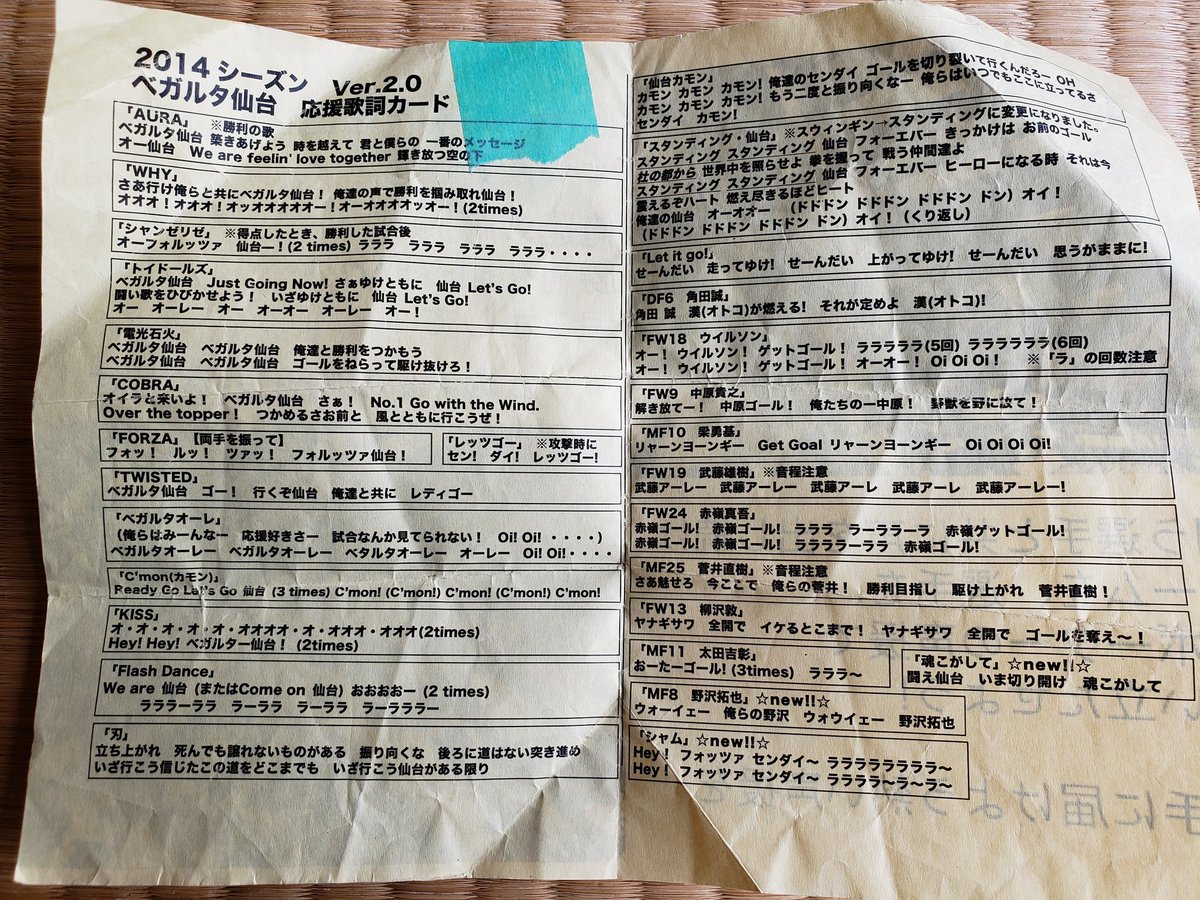 2014 シーズン Ver.2.0
ベガルタ仙台 応援歌詞カード
「AURA」 ※勝利の歌
ベガルタ仙台 築きあげよう 時を越えて 君と僕らの 一番のメッセージ
オー仙台 We are feelin' love together 輝き放つ空の下
「WHY」
さあ行け俺らと共にベガルタ仙台！ 俺達の声で勝利を掴み取れ仙台！
オオオ！オオオ！オッオオオオオー！オーオオオオッオー！(2times)
「シャンゼリゼ」 ※得点したとき、勝利した試合後
オーフォルッツァ 仙台ー！(2 times) ラララ ラララ ラララ ラララ・・・・
「トイドールズ」
ベガルタ仙台 Just Going Now! さぁゆけともに 仙台 Let's Go!
闘い歌をひびかせよう！ いざゆけともに 仙台 Let's Go!
オー オーレー オー オーオー オーレー オー！
「電光石火」
ベガルタ仙台 ベガルタ仙台 俺達と勝利をつかもう
ベガルタ仙台 ベガルタ仙台 ゴールをねらって駆け抜けろ！
「COBRA」
オイラと来いよ！ ベガルタ仙台 さぁ！ No.1 Go with the Wind.
Over the topper！ つかめるさお前と 風とともに行こうぜ！
「FORZA」【両手を振って】
フォッ！ ルッ！ ツァッ！ フォルッツァ仙台！
「レッツゴー」 ※攻撃時に
セン！ダイ！ レッツゴー！
「TWISTED」
ベガルタ仙台 ゴー！ 行くぞ仙台 俺達と共に レディゴー
「ベガルタオーレ」
（俺らはみーんなー 応援好きさー 試合なんか見てられない！ Oi! Oi! ・・・・）
ベガルタオーレー ベガルタオーレー ベタルタオーレー オーレー Oi! Oi!・・・・
「C'mon(カモン)」
Ready Go Let's Go 仙台 (3 times) C'mon! (C'mon!) C'mon! (C'mon!) C'mon!
「KISS」
オ・オ・オ・オ・オ・オオオオ・オ・オオオ・オオオ(2times)
Hey! Hey! ベガルター仙台！ (2times)
「Flash Dance」
We are 仙台 (またはCome on 仙台) おおおおー (2 times)
ラララーララ ラーララ ラーララ ラーラララー
「刃」
立ち上がれ 死んでも譲れないものがある 振り向くな 後ろに道はない突き進め
いざ行こう信じたこの道をどこまでも いざ行こう仙台がある限り
「仙台カモン」
カモン カモン カモン! 俺達のセンダイ ゴールを切り裂いて行くんだろー OH
カモン カモン カモン! もう二度と振り向くなー 俺らはいつでもここに立ってるさ
センダイ カモン!
「スタンディング・仙台」※スウィンギン→スタンディングに変更になりました。
スタンディング スタンディング 仙台 フォーエバー きっかけは お前のゴール
杜の都から 世界中を照らせよ 拳を握って 戦う仲間達よ
スタンディング スタンディング 仙台 フォーエバー ヒーローになる時 それは今
震えるぞハート 燃え尽きるほどヒート
俺達の仙台 オーオオー （ドドドン ドドドン ドドドン ドン）オイ！
（ドドドン ドドドン ドドドン ドン）オイ！（くり返し）
「Let it go!」
せーんだい 走ってゆけ! せーんだい 上がってゆけ! せーんだい 思うがままに!
「DF6 角田誠」
角田 誠 漢(オトコ)が燃える! それが定めよ 漢(オトコ)!
「FW18 ウイルソン」
オー！ウイルソン！ゲットゴール！ ラララララ(5回) ララララララ(6回)
オー！ウイルソン！ゲットゴール！ オーオー！ Oi Oi Oi！ ※「ラ」の回数注意
「FW9 中原貴之」
解き放てー！ 中原ゴール！ 俺たちの一中原！ 野獣を野に放て！
「MF10 梁勇基」
リャーンヨーンギー Get Goal リャーンヨーンギー Oi Oi Oi Oi!
「FW19 武藤雄樹」※音程注意
武藤アーレー 武藤アーレー 武藤アーレ 武藤アーレ 武藤アーレー!
「FW24 赤嶺真吾」
赤嶺ゴール! 赤嶺ゴール! ラララ ラーラララーラ 赤嶺ゲットゴール!
赤嶺ゴール! 赤嶺ゴール! ララララーララ 赤嶺ゴール!
「MF25 菅井直樹」※音程注意
さあ魅せろ 今ここで 俺らの菅井！ 勝利目指し 駆け上がれ 菅井直樹！
「FW13 柳沢敦」
ヤナギサワ 全開で イケるとこまで！ ヤナギサワ 全開で ゴールを奪え〜！
「MF11 太田吉彰」
おーたーゴール! (3times) ラララ〜
「魂こがして」☆new!!☆
闘え仙台 いま切り開け 魂こがして
「MF8 野沢拓也」☆new!!☆
ウォーイェー 俺らの野沢 ウォウイェー 野沢拓也
「シャム」☆new!!☆
Hey！フォッツァ センダイ〜 ララララララララ〜
Hey！フォッツァ センダイ〜 ララララ〜ラ〜ラ〜